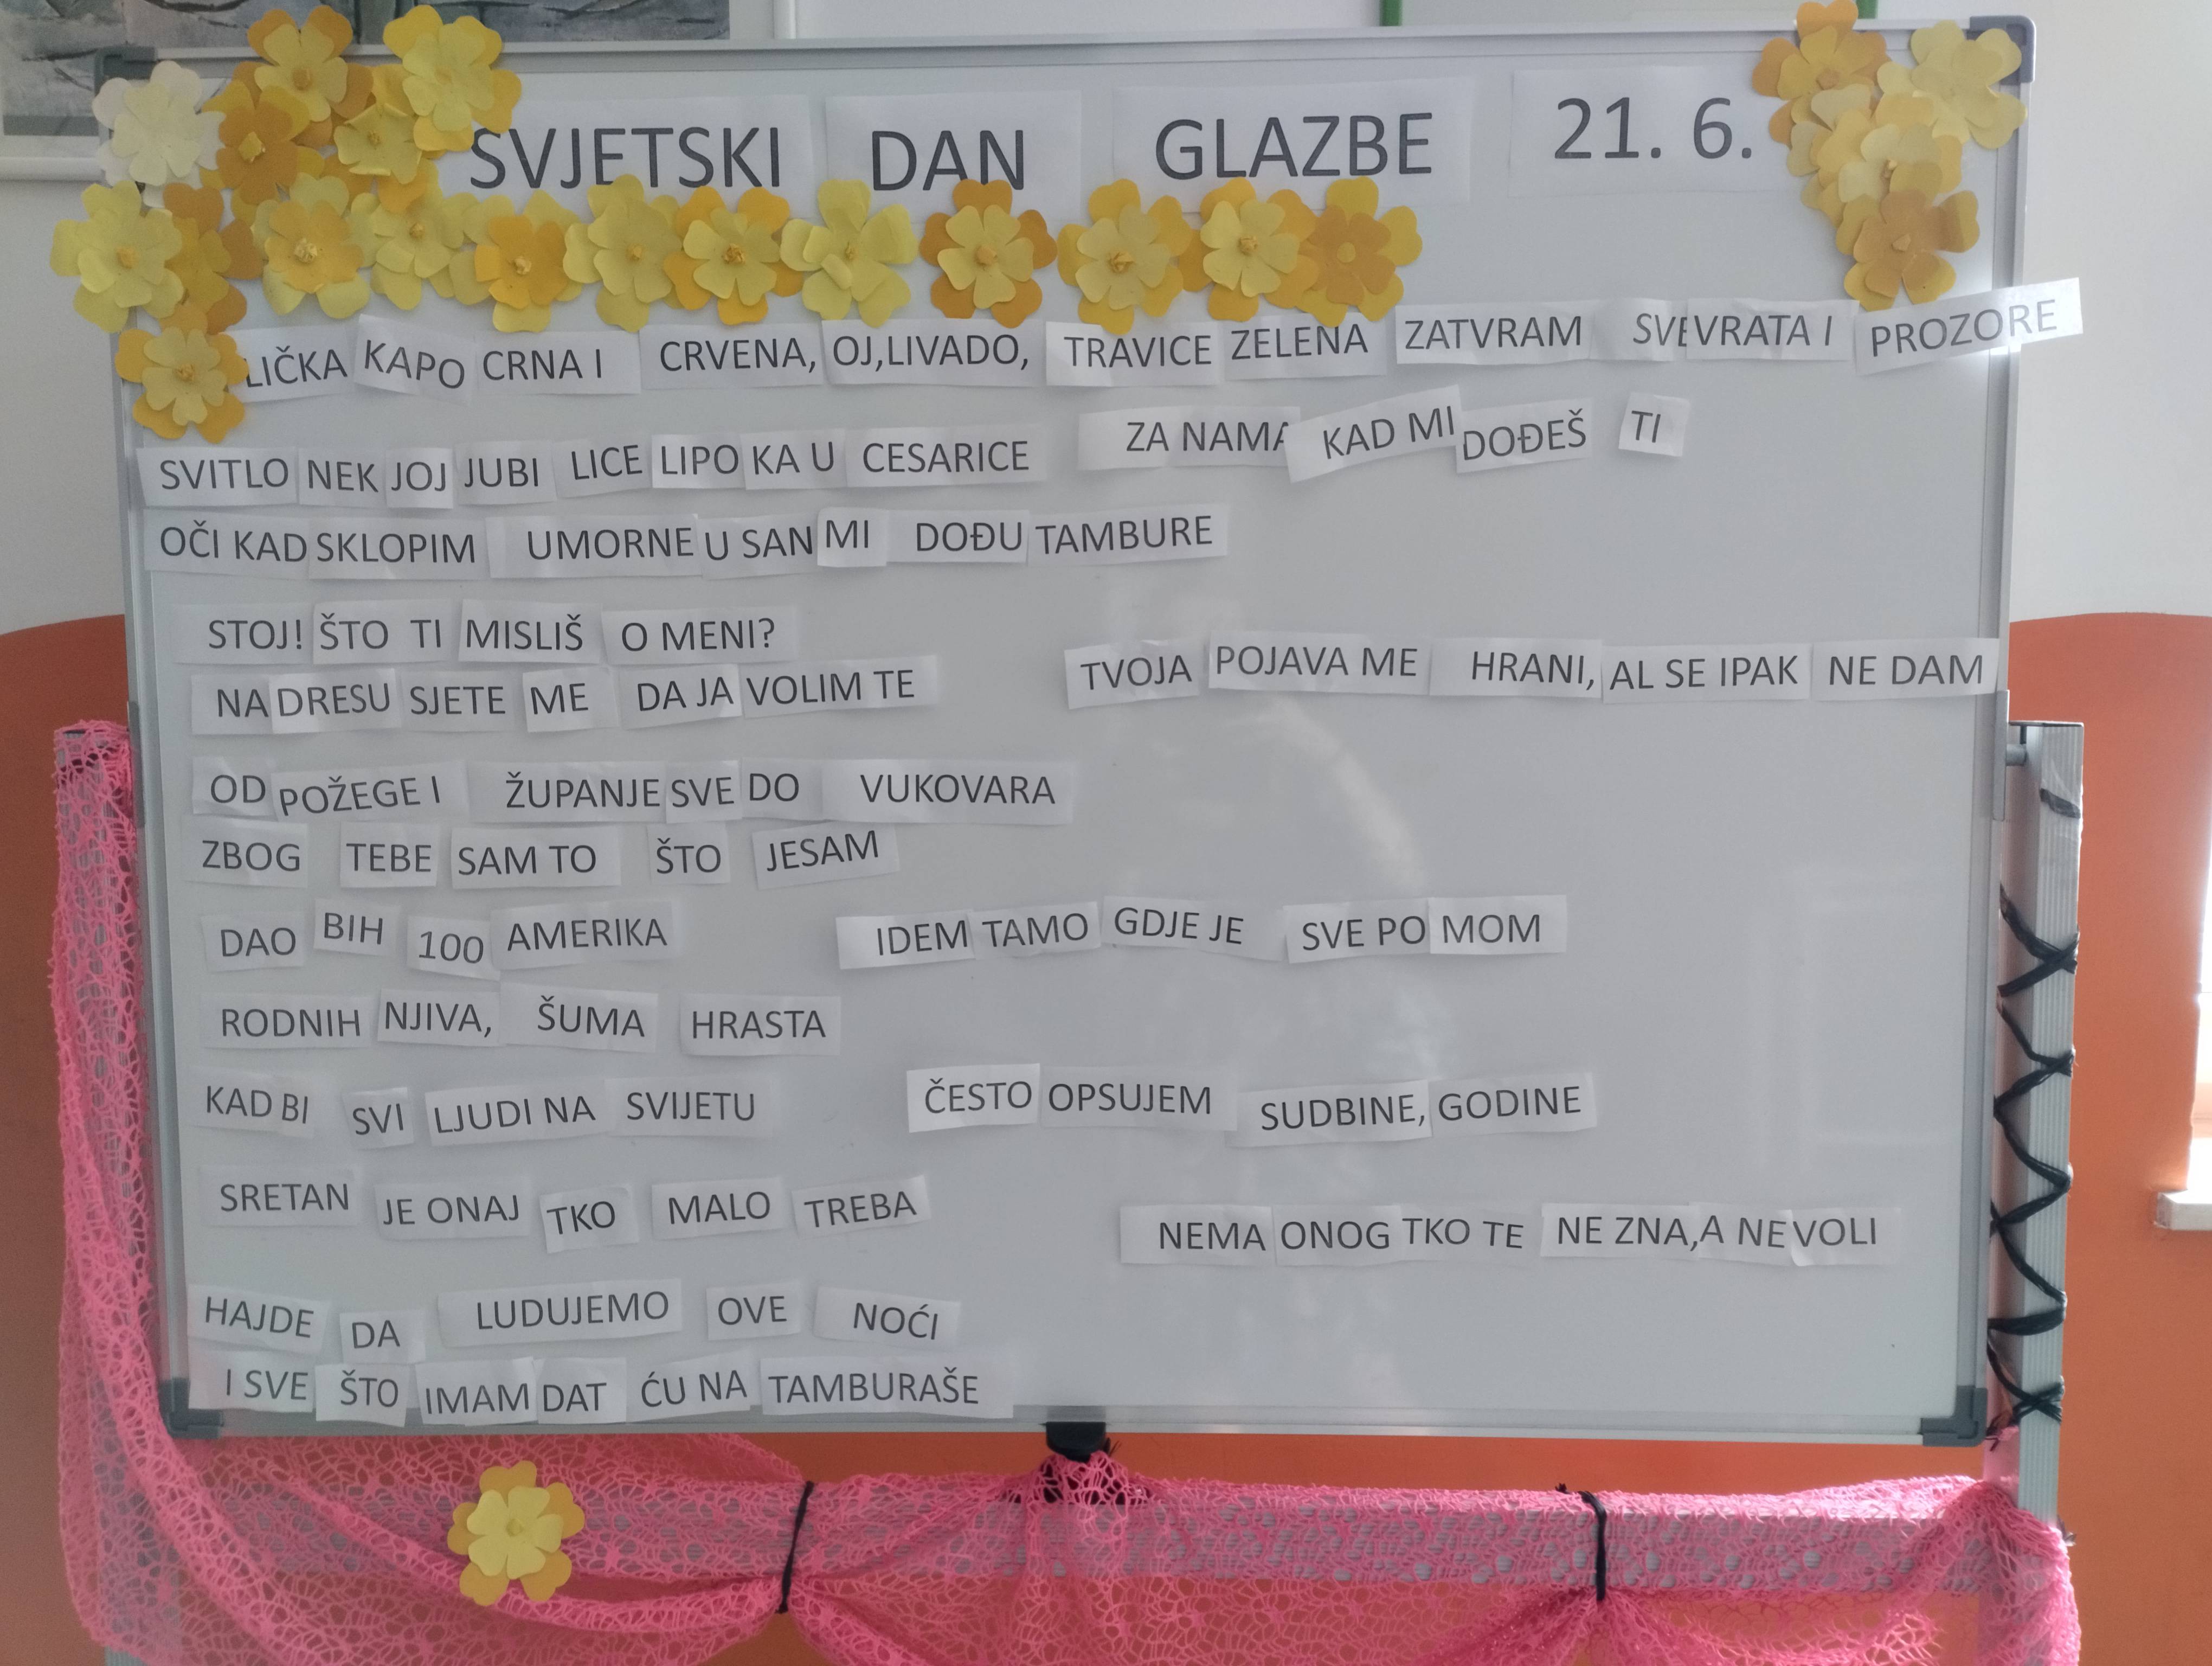 SVJETSKI DAN GLAZBE 21. 6.
LIČKA KAPO CRNA I CRVENA, OJ,LIVADO, TRAVICE ZELENA
ZATVRAM SVE VRATA I PROZORE
ZA NAMA KAD MI DOĐEŠ TI
SVITLO NEK JOJ JUBI LICE LIPO KA U CESARICE
OČI KAD SKLOPIM UMORNE U SAN MI DOĐU TAMBURE
STOJ! ŠTO TI MISLIŠ O MENI?
NA DRESU SJETE ME DA JA VOLIM TE
TVOJA POJAVA ME HRANI, AL SE IPAK NE DAM
OD POŽEGE I ŽUPANJE SVE DO VUKOVARA
ZBOG TEBE SAM TO ŠTO JESAM
DAO BIH 100 AMERIKA
IDEM TAMO GDJE JE SVE PO MOM
RODNIH NJIVA, ŠUMA HRASTA
KAD BI SVI LJUDI NA SVIJETU
ČESTO OPSUJEM SUDBINE, GODINE
SRETAN JE ONAJ TKO MALO TREBA
NEMA ONOG TKO TE NE ZNA,A NE VOLI
HAJDE DA LUDUJEMO OVE NOĆI
I SVE ŠTO IMAM DAT ĆU NA TAMBURAŠE